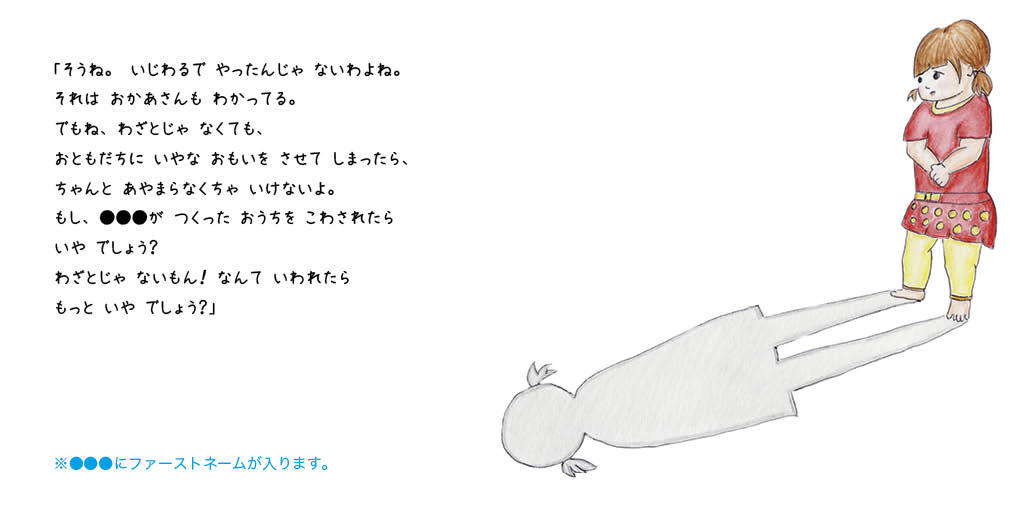 「そうね。 いじわるで やったんじゃ ないわよね。
それは おかあさんも わかってる。
でもね、わざとじゃ なくても、
おともだちに いやな おもいを させて しまったら、
ちゃんと あやまらなくちゃ いけないよ。
もし、●●●が つくった おうちを こわされたら
いや でしょう?
わざとじゃ ないもん! なんて いわれたら
もっと いや でしょう?」
※●●●にファーストネームが入ります。